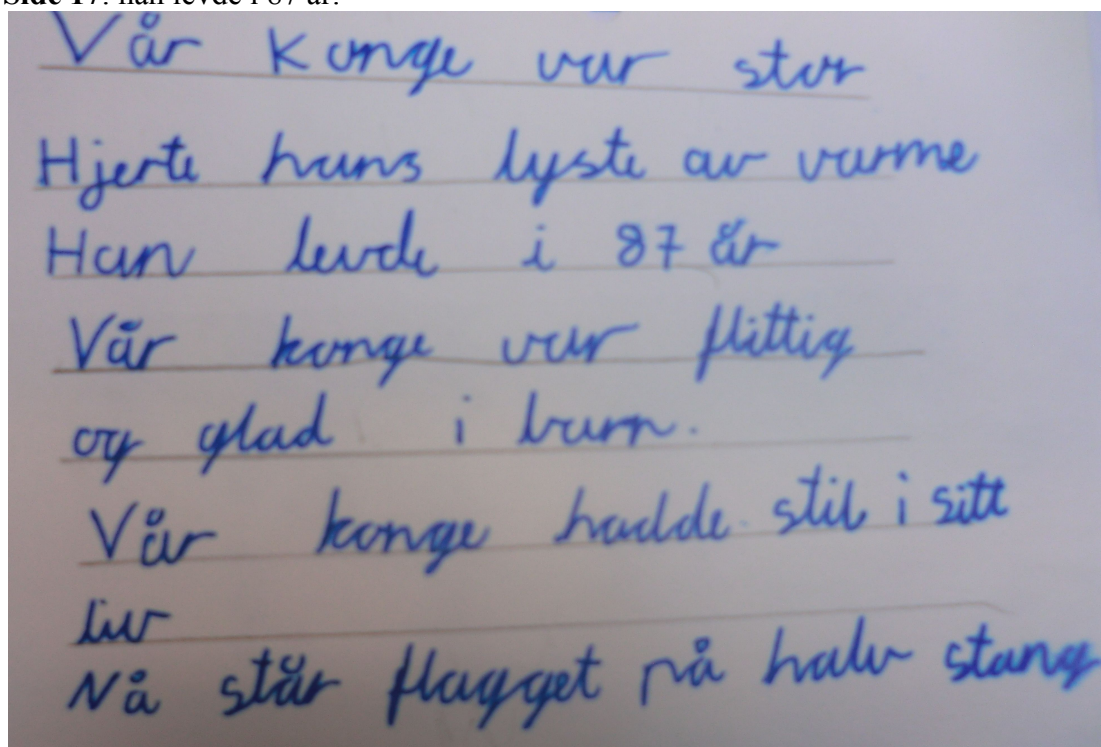 Side 17: han levde i 87 år.
Vår Konge var stor
Hjerte hans lyste av varme
Han levde i 87 år
Vår konge var flittig
og glad i barn.
Vår konge hadde stil i sitt
liv
Nå står flagget på halv stang